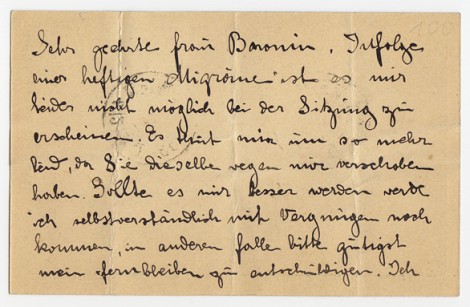 Sehr geehrte Frau Baronin, Infolge
einer heftigen Migräne ist es mir
leider nicht möglich bei der Sitzung zu
erscheinen. Es thut mir um so mehr
leid, da Sie dieselbe wegen mir verschoben
haben. Sollte es mir besser werden werde
ich selbstverständlich mit Vergnügen noch
kommen, im anderen falle bitte gütigst
mein fernbleiben zu entschuldigen. Ich